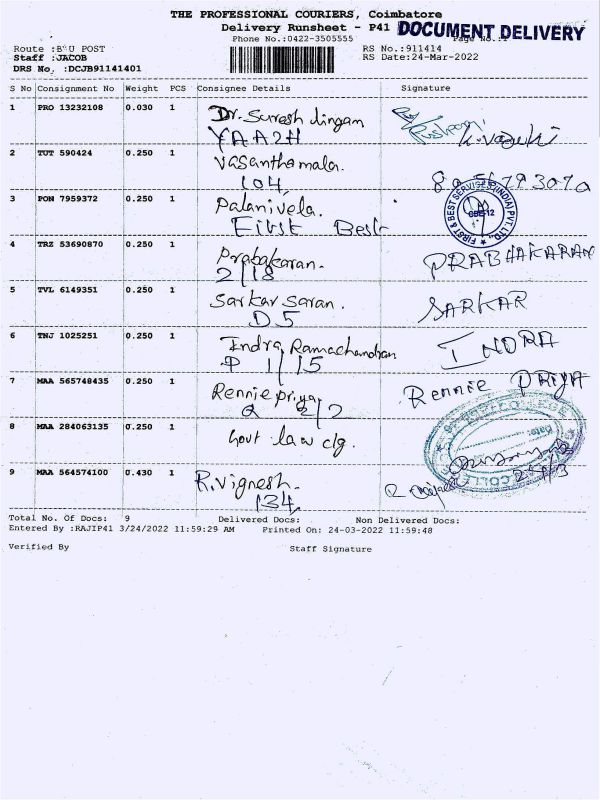 THE PROFESSIONAL COURIERS, Coimbatore
Delivery Runsheet - P41 DOCUMENT DELIVERY
Phone No.:0422-3505555 Page No.:1
Route :B U POST RS No.:911414
Staff :JACOB RS Date:24-Mar-2022
DRS No. :DCJB91141401
S No Consignment No Weight PCS Consignee Details Signature
1 PRO 13232108 0.030 1 Dr. Suresh lingam
2 TUT 590424 0.250 1 Vasanthamala.
104
3 PON 7959372 0.250 1 Palanivela.
First Best
FIRST & BEST SERVICES (INDIA) PVT. LTD.,
CBE-12
4 TRZ 53690870 0.250 1 Prabakaran. PRABHAKARAN
2/18
5 TVL 6149351 0.250 1 Sarkar Saran. SARKAR
D5
6 TNJ 1025251 0.250 1 Indra Ramachandran INDRA
P 1/15
7 MAA 565748435 0.250 1 Rennie priya Rennie PRIYA
2/2
8 MAA 284063135 0.250 1 Govt law clg.
9 MAA 564574100 0.430 1 R. Vignesh.
134
Total No. Of Docs: 9 Delivered Docs: Non Delivered Docs:
Entered By :RAJIP41 3/24/2022 11:59:29 AM Printed On: 24-03-2022 11:59:48
Verified By Staff Signature